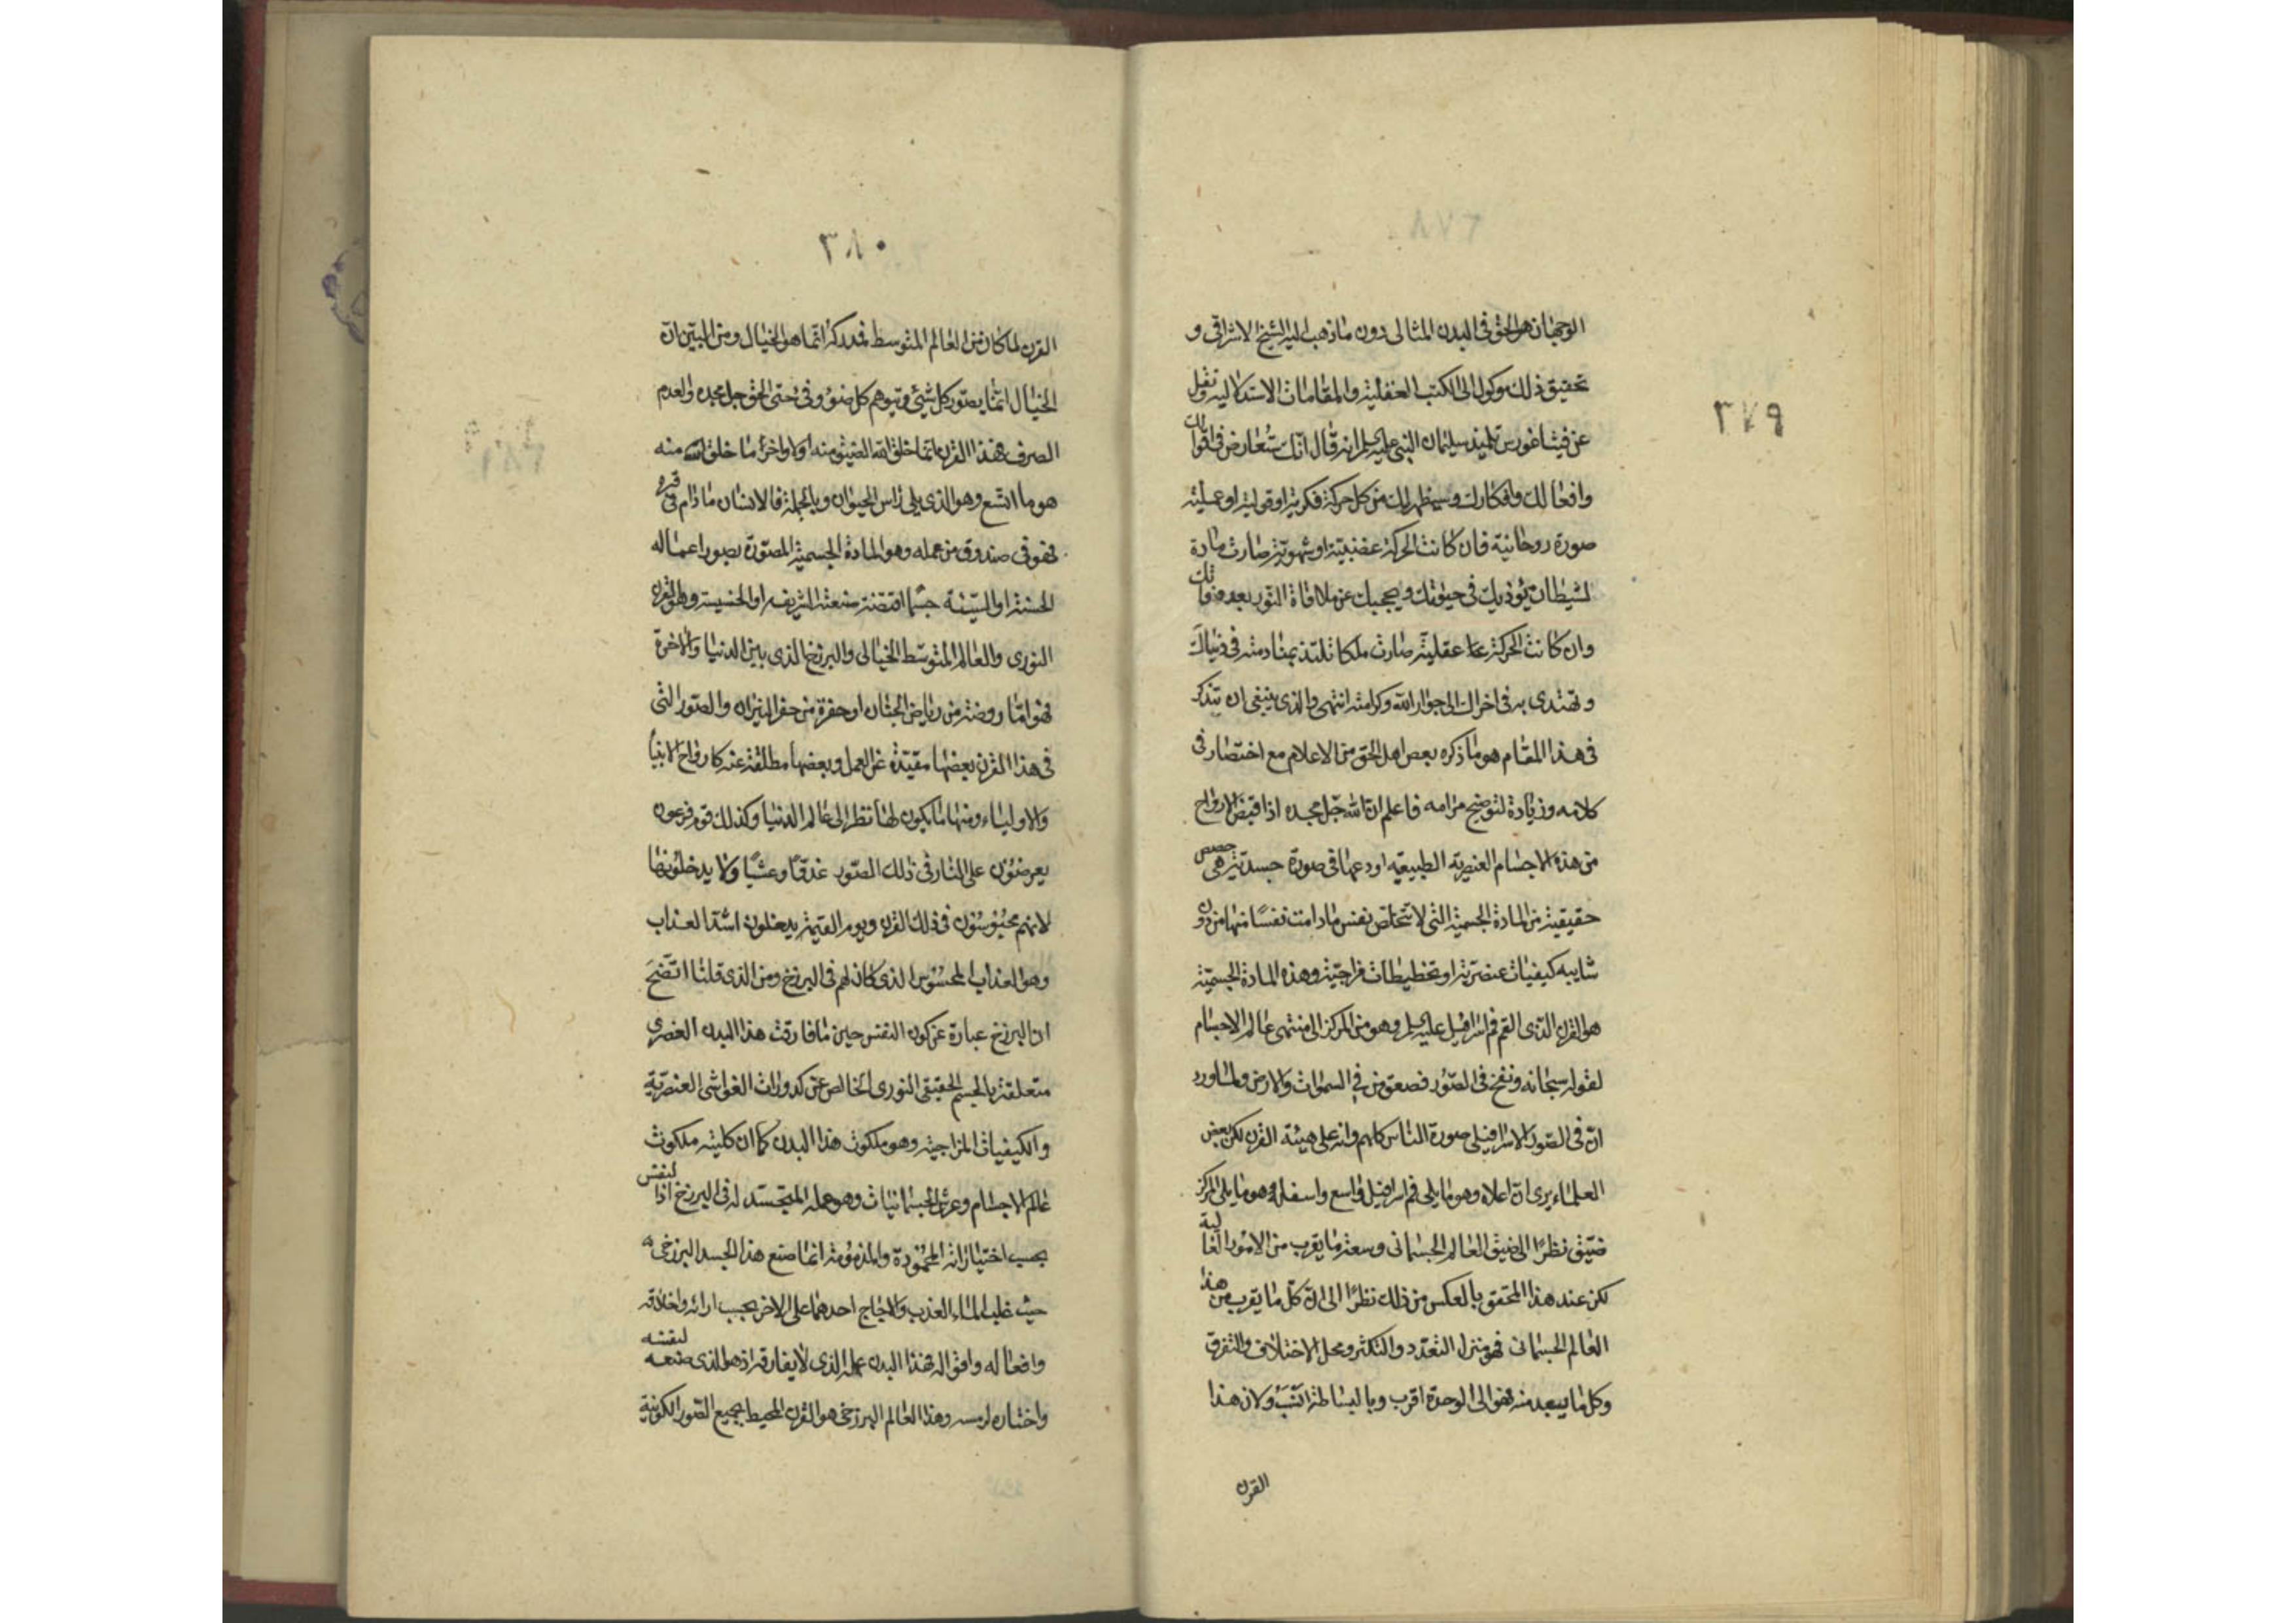 ٣٧٩
الوجهان هو الحق فى البدن المثالى دون ماذهب اليه الشيخ الاشراقى و
تحقيق ذلك موكول الى الكتب العقلية والمقامات الاستدلاليه ونقل
عن فيثاغورس تلميذ سليمان النبى عليه السلم انه قال انك ستعارض فى اقوالك
وافعالك وافكارك وسيظهر لك من كل حركة فكرية او قولية او عملية
صورة روحانية فان كانت الحركة غضبية او شهوية صارت مادة
لشيطان يؤذيك فى حيوتك ويحجبك عن ملاقاة النور بعد وفاتك
وان كانت الحركة عقلية صارت ملكا تلتذ بمنادمته فى دنياك
وتهتدى به فى اخراك الى جوار الله وكرامته انتهى والذى ينبغى ان يتذكر
فى هذا المقام هو ما ذكره بعض اهل الحق من الاعلام مع اختصار فى
كلامه وزيادة لتوضيح مرامه فاعلم ان الله جل مجده اذا قبض الارواح
من هذه الاجسام العنصرية الطبيعية اودعها فى صورة جسدية هى حصص
حقيقية من المادة الجسمية التى لا تتخلص نفس مادامت نفسًا منها من دون
شايبه كيفيات عنصرية او تخطيطات مزاجية وهذه المادة الجسمية
هو القرن الذى القم فم اسرافيل عليه السلم وهو من المركز الى منتهى عالم الاجسام
لقوله سبحانه ونفخ فى الصور فصعق من فى السموات والارض ولما ورد
ان فى الصور الاسرافيلى صورة الناس كلهم وانه على هيئة القرن لكن بعض
العلماء يرى ان اعلاه وهو ما يلى فم اسرافيل واسع واسفله وهو ما يلى المركز
ضيق نظرًا الى ضيق العالم الجسمانى وسعة ما يقرب من الامور العالية
لكن عند هذا المحقق بالعكس من ذلك نظرًا الى ان كل ما يقرب من هذا
العالم الجسمانى فهو منزل التعدد والتكثر ومحل الاختلاف والتفرق
وكل ما يبعد منه فهو الى الوحدة اقرب وبالبساطة انسب ولان هذا
القرن
٣٨٠
القرن لما كان من العالم المتوسط فمدركه انما هو الخيال ومن المبين ان
الخيال انما يصور كل شيئ ويتوهم كل ضوء وفى حتى الحق جل مجده والعدم
الصرف فهذا القرن انما خلق الله الضيق منه اولا واخر ما خلق الله منه
هو ما اتسع وهو الذى يلى راس الحيوان وبالجملة فالانسان ما دام فى قبره
فهو فى صندوق من عمله وهو المادة الجسمية المصورة بصور اعماله
الحسنة او السيئه حسبما اقتضته صنعته الشريفه او الخسيسة وهو القرن
النورى والعالم المتوسط الخيالى والبرزخ الذى بين الدنيا والاخرة
فهو اما روضة من رياض الجنان او حفرة من حفر النيران والصور التى
فى هذا القرن بعضها مقيدة عن العمل وبعضها مطلقة عنه كارواح الانبياء
والاولياء ومنها ما يكون لها نظر الى عالم الدنيا وكذلك قوم فرعون
يعرضون على النار فى ذلك الصور غدوًا وعشيًا ولا يدخلونها
لانهم محبوسون فى ذلك القرن ويوم القيمة يدخلون اشد العذاب
وهو العذاب المحسوس الذى كان لهم فى البرزخ ومن الذى قلنا اتضح
ان البرزخ عبارة عن كون النفس حين ما فارقت هذا البدن العنصرى
متعلقة بالجسم الحقيقى النورى الخالص عن كدورات الغواشى العنصرية
والكيفيات المزاجية وهو ملكوت هذا البدن كما ان كليته ملكوت
عالم الاجسام وعرش الجسمانيات وهو عمله المتجسد له فى البرزخ اذا لنفس
بحسب اختياراته المحمودة والمذمومة انما صنع هذا الجسد البرزخى
حيث غلب الماء العذب والاجاج احدهما على الاخر بحسب ارائه واخلاقه
وافعاله واقواله فهذا البدن عمله الذى لا يفارقه اذ هو الذى صنعه لنفسه
واختاره لرمسه وهذا العالم البرزخى هو القرن المحيط بجميع الصور الكونية